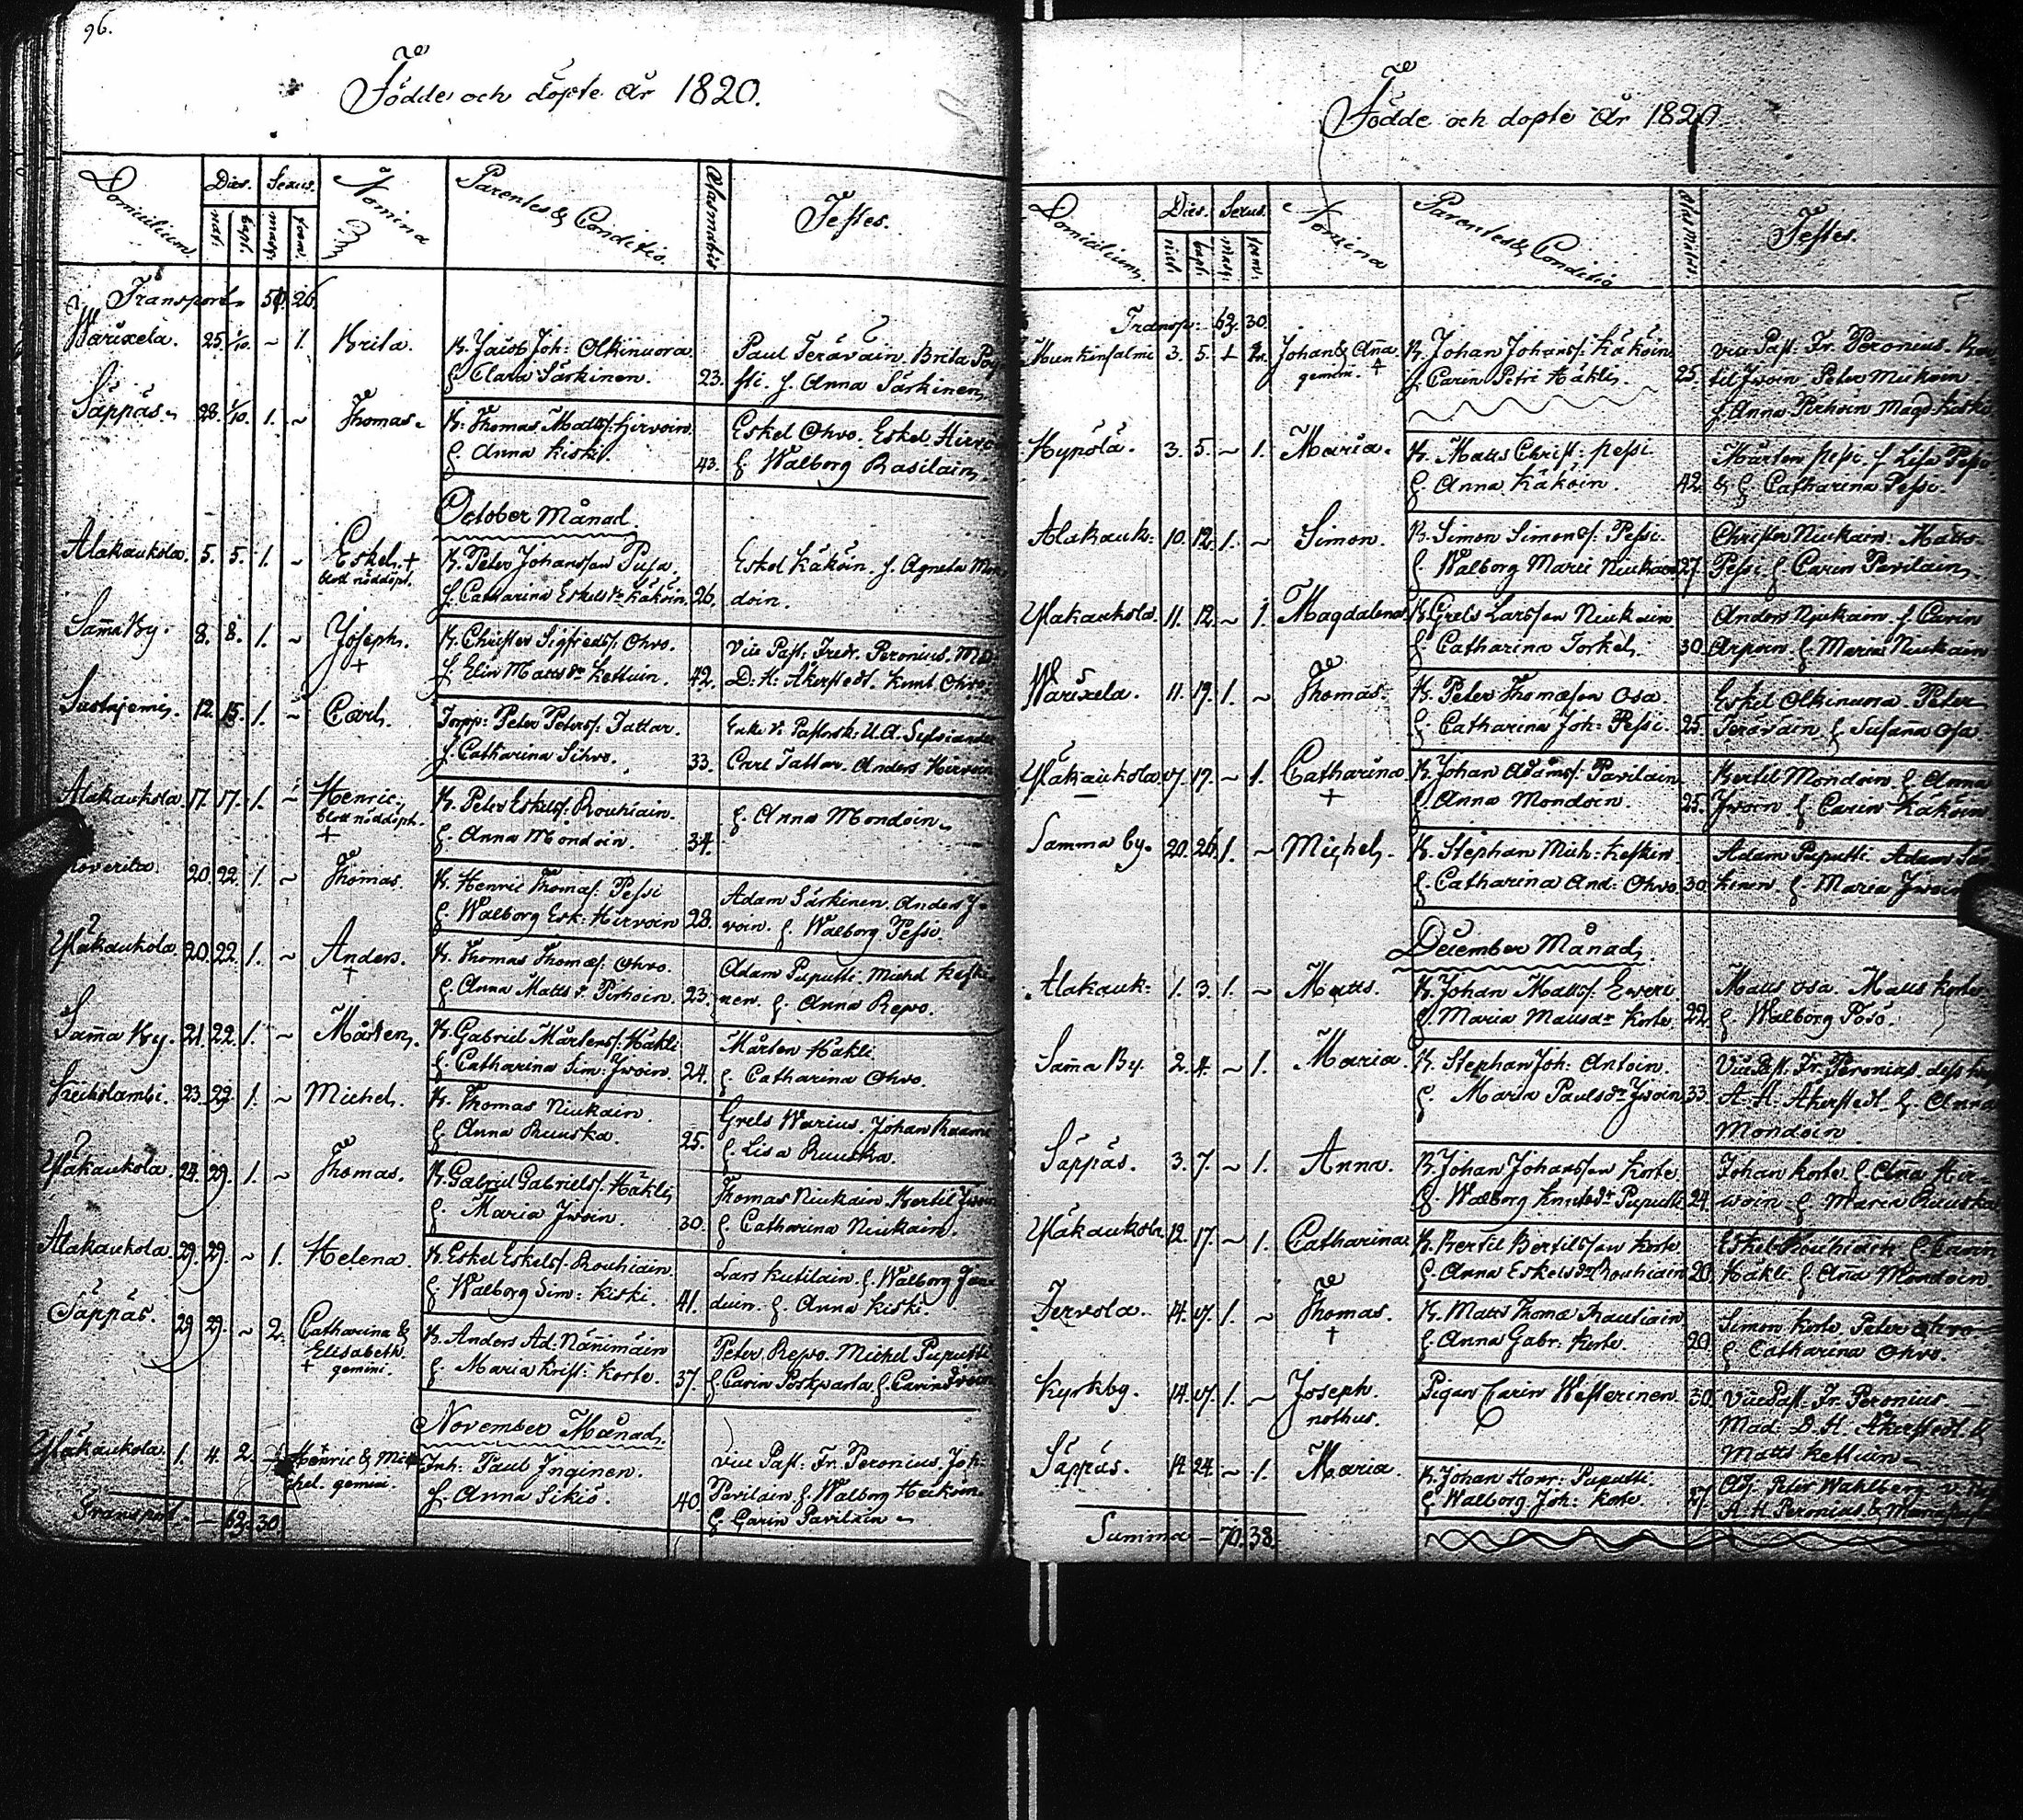 96.
Födde och döpte år 1820.
Domicilium. Dies. Sexus. Nomina Parentes & Conditio. Ætas matris Testes.
nati. bapt. masc. foem.
Transport 50. 26.
Waruxela. 25. 1/10. ~ 1. Brita. B. Jacob Joh: Olkinuora
H. Clara Särkinen. 23. Paul Terävain Brita Poy
sti. H. Anna Särkinen
Säppäs. 28. 1/10. 1. ~ Thomas. B. Thomas Matts: Hirvoin.
H. Anna Kiski. 43. Eskel Ohvo. Eskel Hirvo
H. Walborg Rasilain.
October Månad.
Alakaukola. 5. 5. 1. ~ Eskel. +
blott nöddöpt. B. Peter Johansson Pusa.
H. Catharina Eskelsdr Käköin. 26. Eskel Käköin. H. Agneta Mon
doin.
Sam̅a By. 8. 8. 1. ~ Joseph.
+ B. Christer Sigfredss: Ohvo.
H. Elin Mattsdr Kettuin. 42. Vice Past: Fredr. Peronius. Md:
D. H. Åkerstedt. Knut Ohvo.
12. 15. 1. ~ Carl. Torpp: Peter Peterss: Tattar.
H. Catharina Sihvo. 33. Enke V. Pastorsk: U. A.
Carl Tattar. Anders Hirvoin
Alakaukola. 17. 17. 1. ~ Henric.
blott nöddöpt.
+ B. Peter Eskelss: Rouhiain.
H. Anna Mondoin. 34. H. Anna Mondoin
20. 22. 1. ~ Thomas. B. Henric Thomass: Pessi
H. Walborg Esk: Hirvoin 28. Adam Särkinen. Anders J-
voin. H. Walborg Pessi.
Yläkaukola. 20. 22. 1. ~ Anders.
+ B. Thomas Thomæs: Ohvo.
H. Anna Matts d. Pirhoin. 23. Adam Puputti. Michel Keski
nen. H. Anna Repo.
Sam̅a By. 21. 22. 1. ~ Mårten. B. Gabriel Mårtens: Häkli
H. Catharina Sim: Jwoin. 24. Mårten Häkli
H. Catharina Ohvo.
23. 29. 1. ~ Michel. B. Thomas Niukain.
H. Anna Ruuska. 25. Grels Warius. Johan
H. Lisa Ruuska.
Yläkaukola. 24. 29. 1. ~ Thomas. B. Gabriel Gabriels: Häkli
H. Maria Jwoin. 30. Thomas Niukain. Bertil Jwoin
H. Catharina Niukain.
Alakaukola. 29. 29. ~ 1. Helena. B. Eskel Eskelss: Rouhiain.
H. Walborg Sim: Kiski. 41. Lars Kutilain. H. Walborg
duin. H. Anna Kiski.
Säppäs. 29 29. ~ 2. Catharina &
Elisabeth.
+ gemini. B. Anders Ad: Nänimäin
H. Maria Krist: Korte. 37. Peter Repo. Michel Puputti
H. Carin Postparta H. Carin Jwoin
November Månad.
Yläkaukola. 1. 4. 2. Henric & Mi
chel. gemini. Inh: Paul Inginen.
H. Anna Sikiö. 40. Vice Past: Fr. Peronius. Joh:
Pavilain H. Walborg Heikoin
H. Carin Pavilain
Transport. — 62. 30.
Födde och döpte år 1820
Domicilium. Dies. Sexus. Nomina Parentes & Conditio Ætas Matris Testes.
nat. bapt. masc. foem.
Transp: 62. 30.
Munkinsalmi 3. 5. 1 2. Johan & Ana
gemini. + B. Johan Johanss: Käköin
H. Carin Petri Häkli. 25. Vice Past: Fr. Peronius. Ber
til Jwoin Peter Mickoin
H. Anna Pirhoin Magd: Koski
Hynölä. 3. 5. ~ 1. Maria. B. Matts Christ: Pessi.
H. Anna Käköin. 42. Mårten Pessi. H. Lisa Pessi
& H. Catharina Pessi.
Alakauk: 10. 12. 1. ~ Simon. B. Simon Simons: Pessi.
H. Walborg Marci Niukain 27. Christer Niukain. Matts
Pessi H. Carin Pavilain.
Yläkaukola. 11. 12. ~ 1. Magdalena B. Grels Larsson Niukain
H. Catharina Torkel. 30. Anders Niukain. H. Carin
H. Maria Niukain
Waruxela. 11. 19. 1. ~ Thomas. B. Peter Thomæson Osa
H. Catharina Joh: Pessi. 25. Eskel Olkinuora. Peter
Terävain H. Susanna Osa.
Yläkaukola. 17. 17. ~ 1. Catharina
+ B. Johan Adams: Pavilain
H. Anna Mondoin. 25. Bertil Mondoin H. Anna
Jwoin. H. Carin Käköin
Samma by. 20. 26. 1. ~ Michel. B. Stephan Mich: Keskin
H. Catharina And: Ohvo. 30. Adam Puputti. Adam Sär
kinen. H. Maria Jwoin
December Månad.
Alakauk: 1. 3. 1. ~ Matts. B. Johan Mattss: Ewert.
H. Maria Matsdr Korte. 22. Matts Osa. Matts Korte
H. Walborg Poso.
Sam̅a By. 2. 4. ~ 1. Maria B. Stephan Joh: Antoin.
H. Maria Paulsdr Jwoin 33. Vice Past. Fr. Peronius. dess
A. H. Åkerstedt. H. Anna
Mondoin
Säppäs. 3. 7. ~ 1. Anna. B. Johan Johansson Korte
H. Walborg Knutsdr Puputti 24. Johan Korte H. Ana Hir-
woin H. Maria Ruuska
Yläkaukola 12. 17. ~ 1. Catharina. B. Bertil Bertilsson Korte
H. Anna Eskelsdr Rouhiain 20. Eskel Rouhiain H. Carin
Häkli. H. Ana Mondoin
Jervola. 14. 17. 1. ~ Thomas.
+ B. Matts Thomæ
H. Anna Gabr: Korte. 20. Simon Korte Peter Ohvo
H. Catharina Ohvo.
Kyrkby. 14. 17. 1. ~ Joseph.
nothus. Pigan Carin Westerinen. 30. Vice Past: Fr. Peronius
Mad. D. H. Åkerstedt. &
Matts Kettuin
Säppäs. 14. 24. ~ 1. Maria. B. Johan Henr: Puputti
H. Walborg Joh: Korte 27 Adj. Peter Wahlberg.
A. H. Peronius. &
Summa — 70. 38.